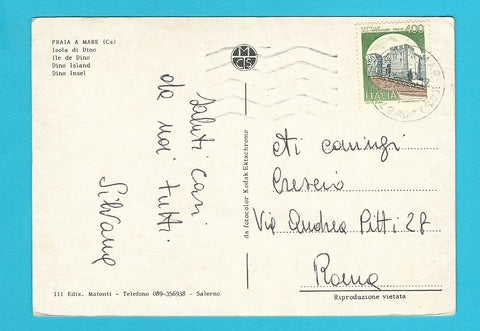 PRAIA A MARE (Cs)
Isola di Dino
Ile de Dino
Dino Island
Dino Insel
MCS
400
ITALIA
Saluti cari
da noi tutti.
Silvana
da fotocolor Kodak Ektachrome
Ai coniugi
Crescio
Via Andrea Pitti 28
Roma
III Ediz. Matonti - Telefono 089-356938 - Salerno
Riproduzione vietata